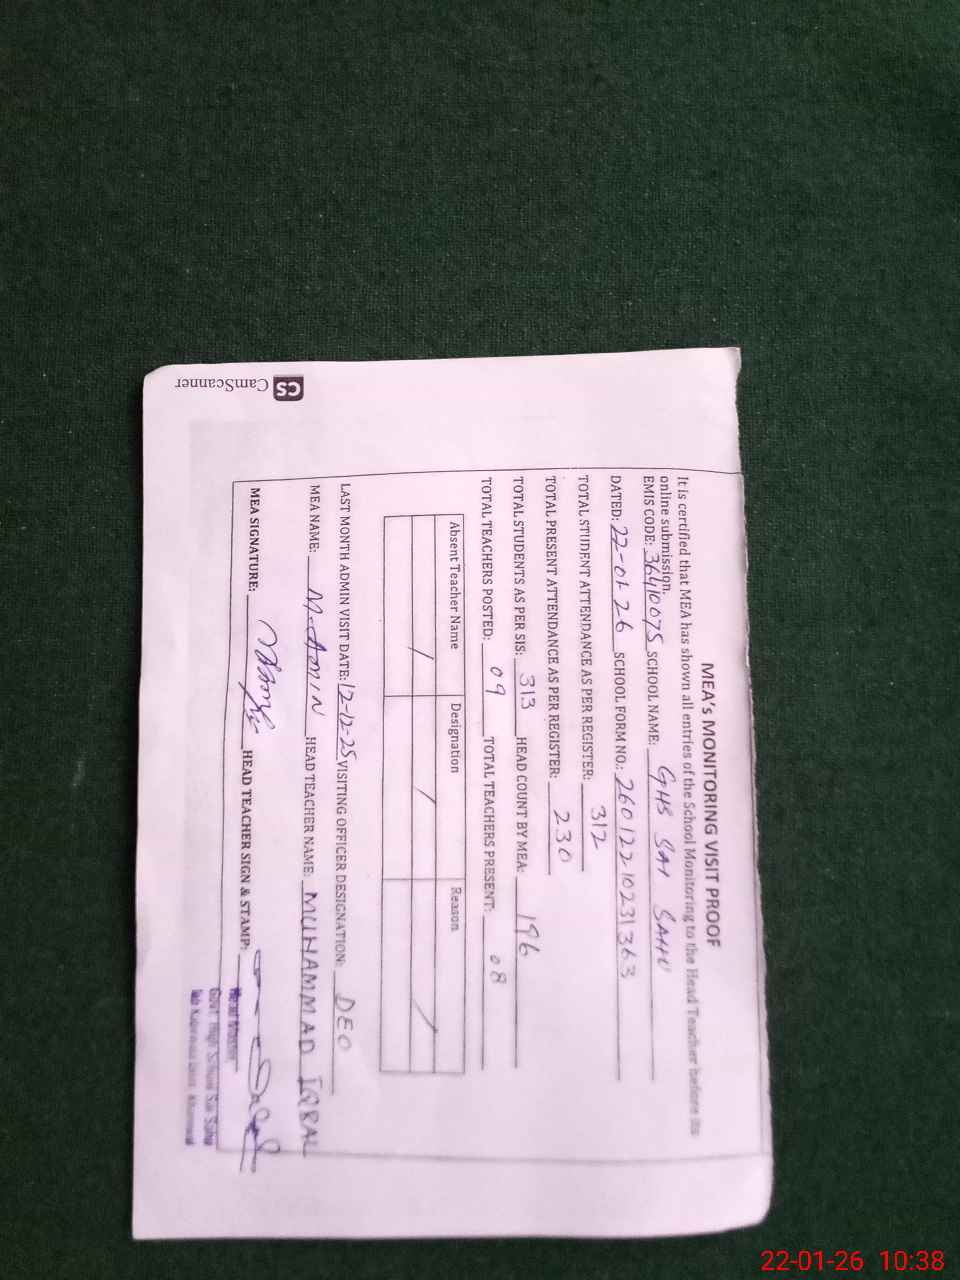 MEA's MONITORING VISIT PROOF
It is certified that MEA has shown all entries of the School Monitoring to the Head Teacher before its
online submission.
EMIS CODE: 36410075 SCHOOL NAME: GHS SAI SAHU
DATED: 22-01-26 SCHOOL FORM NO.: 26012210231363
TOTAL STUDENT ATTENDANCE AS PER REGISTER: 312
TOTAL PRESENT ATTENDANCE AS PER REGISTER: 230
TOTAL STUDENTS AS PER SIS: 313 HEAD COUNT BY MEA: 196
TOTAL TEACHERS POSTED: 09 TOTAL TEACHERS PRESENT: 08
Absent Teacher Name Designation Reason
/ / /
LAST MONTH ADMIN VISIT DATE: 12-12-25 VISITING OFFICER DESIGNATION: DEO
MEA NAME: M-AMIN HEAD TEACHER NAME: MUHAMMAD IQBAL
MEA SIGNATURE: HEAD TEACHER SIGN & STAMP:
Head Master
Govt. High School Sai Sahu
CS CamScanner
22-01-26 10:38